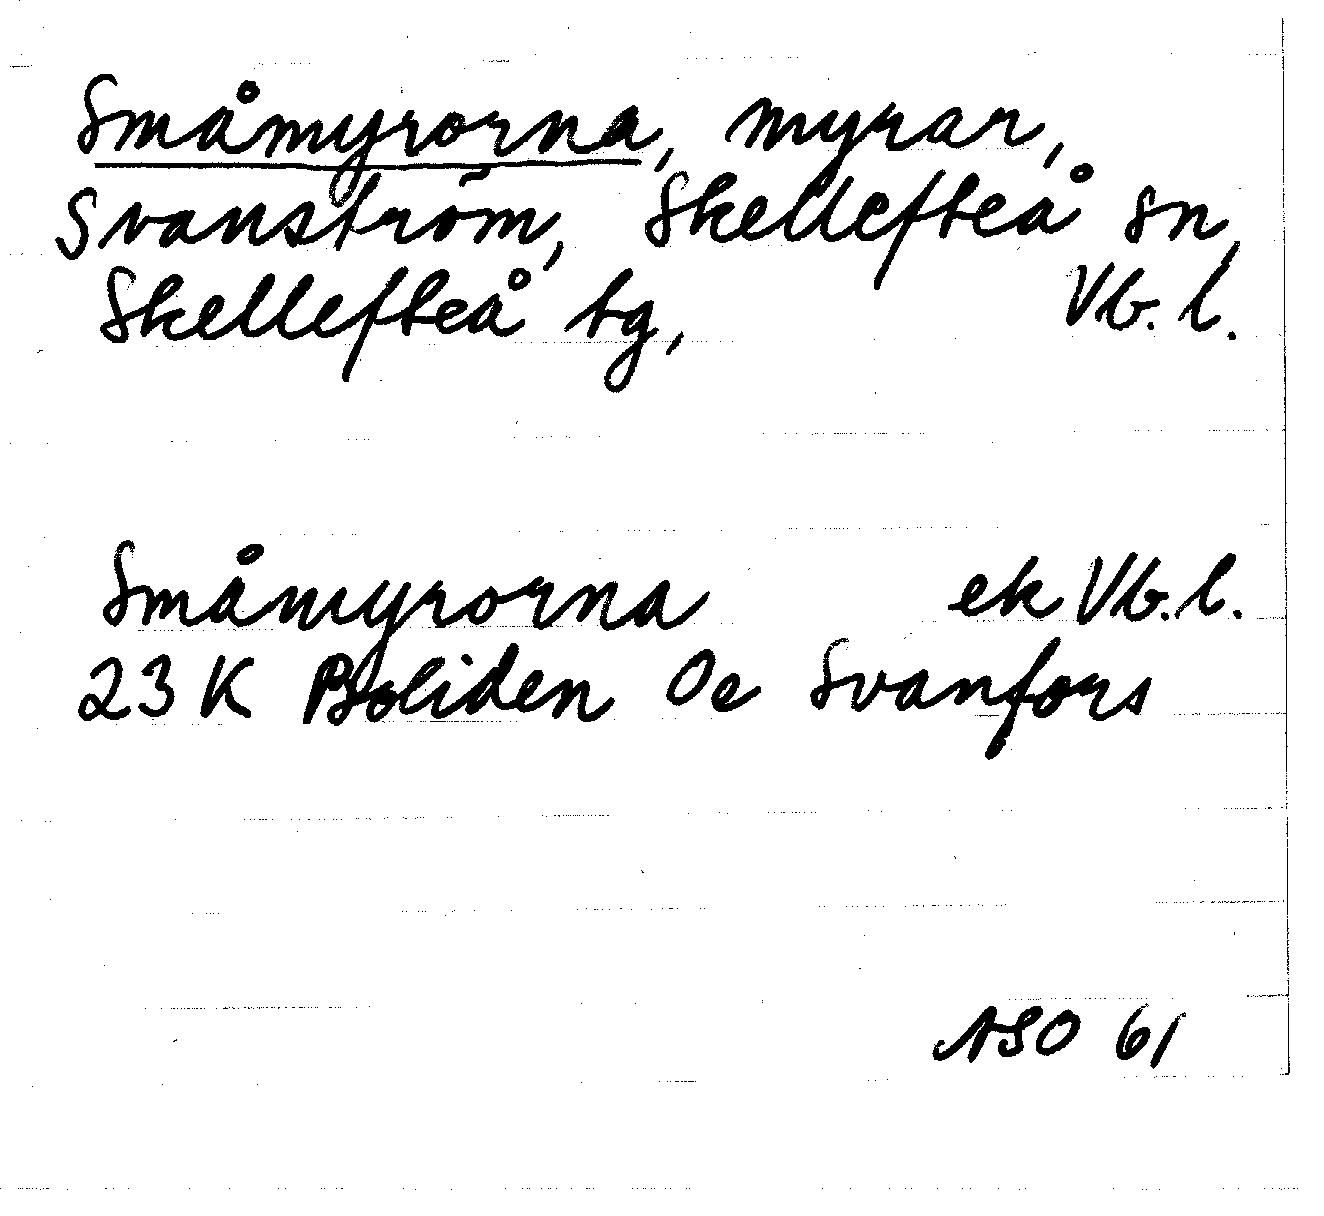 Småmyrorna, myrar,
Svanström, Skellefteå sn,
Skellefteå tg, Vb. l.
Småmyrorna ek Vb. l.
23 K Boliden 0e Svanfors
ASO 61